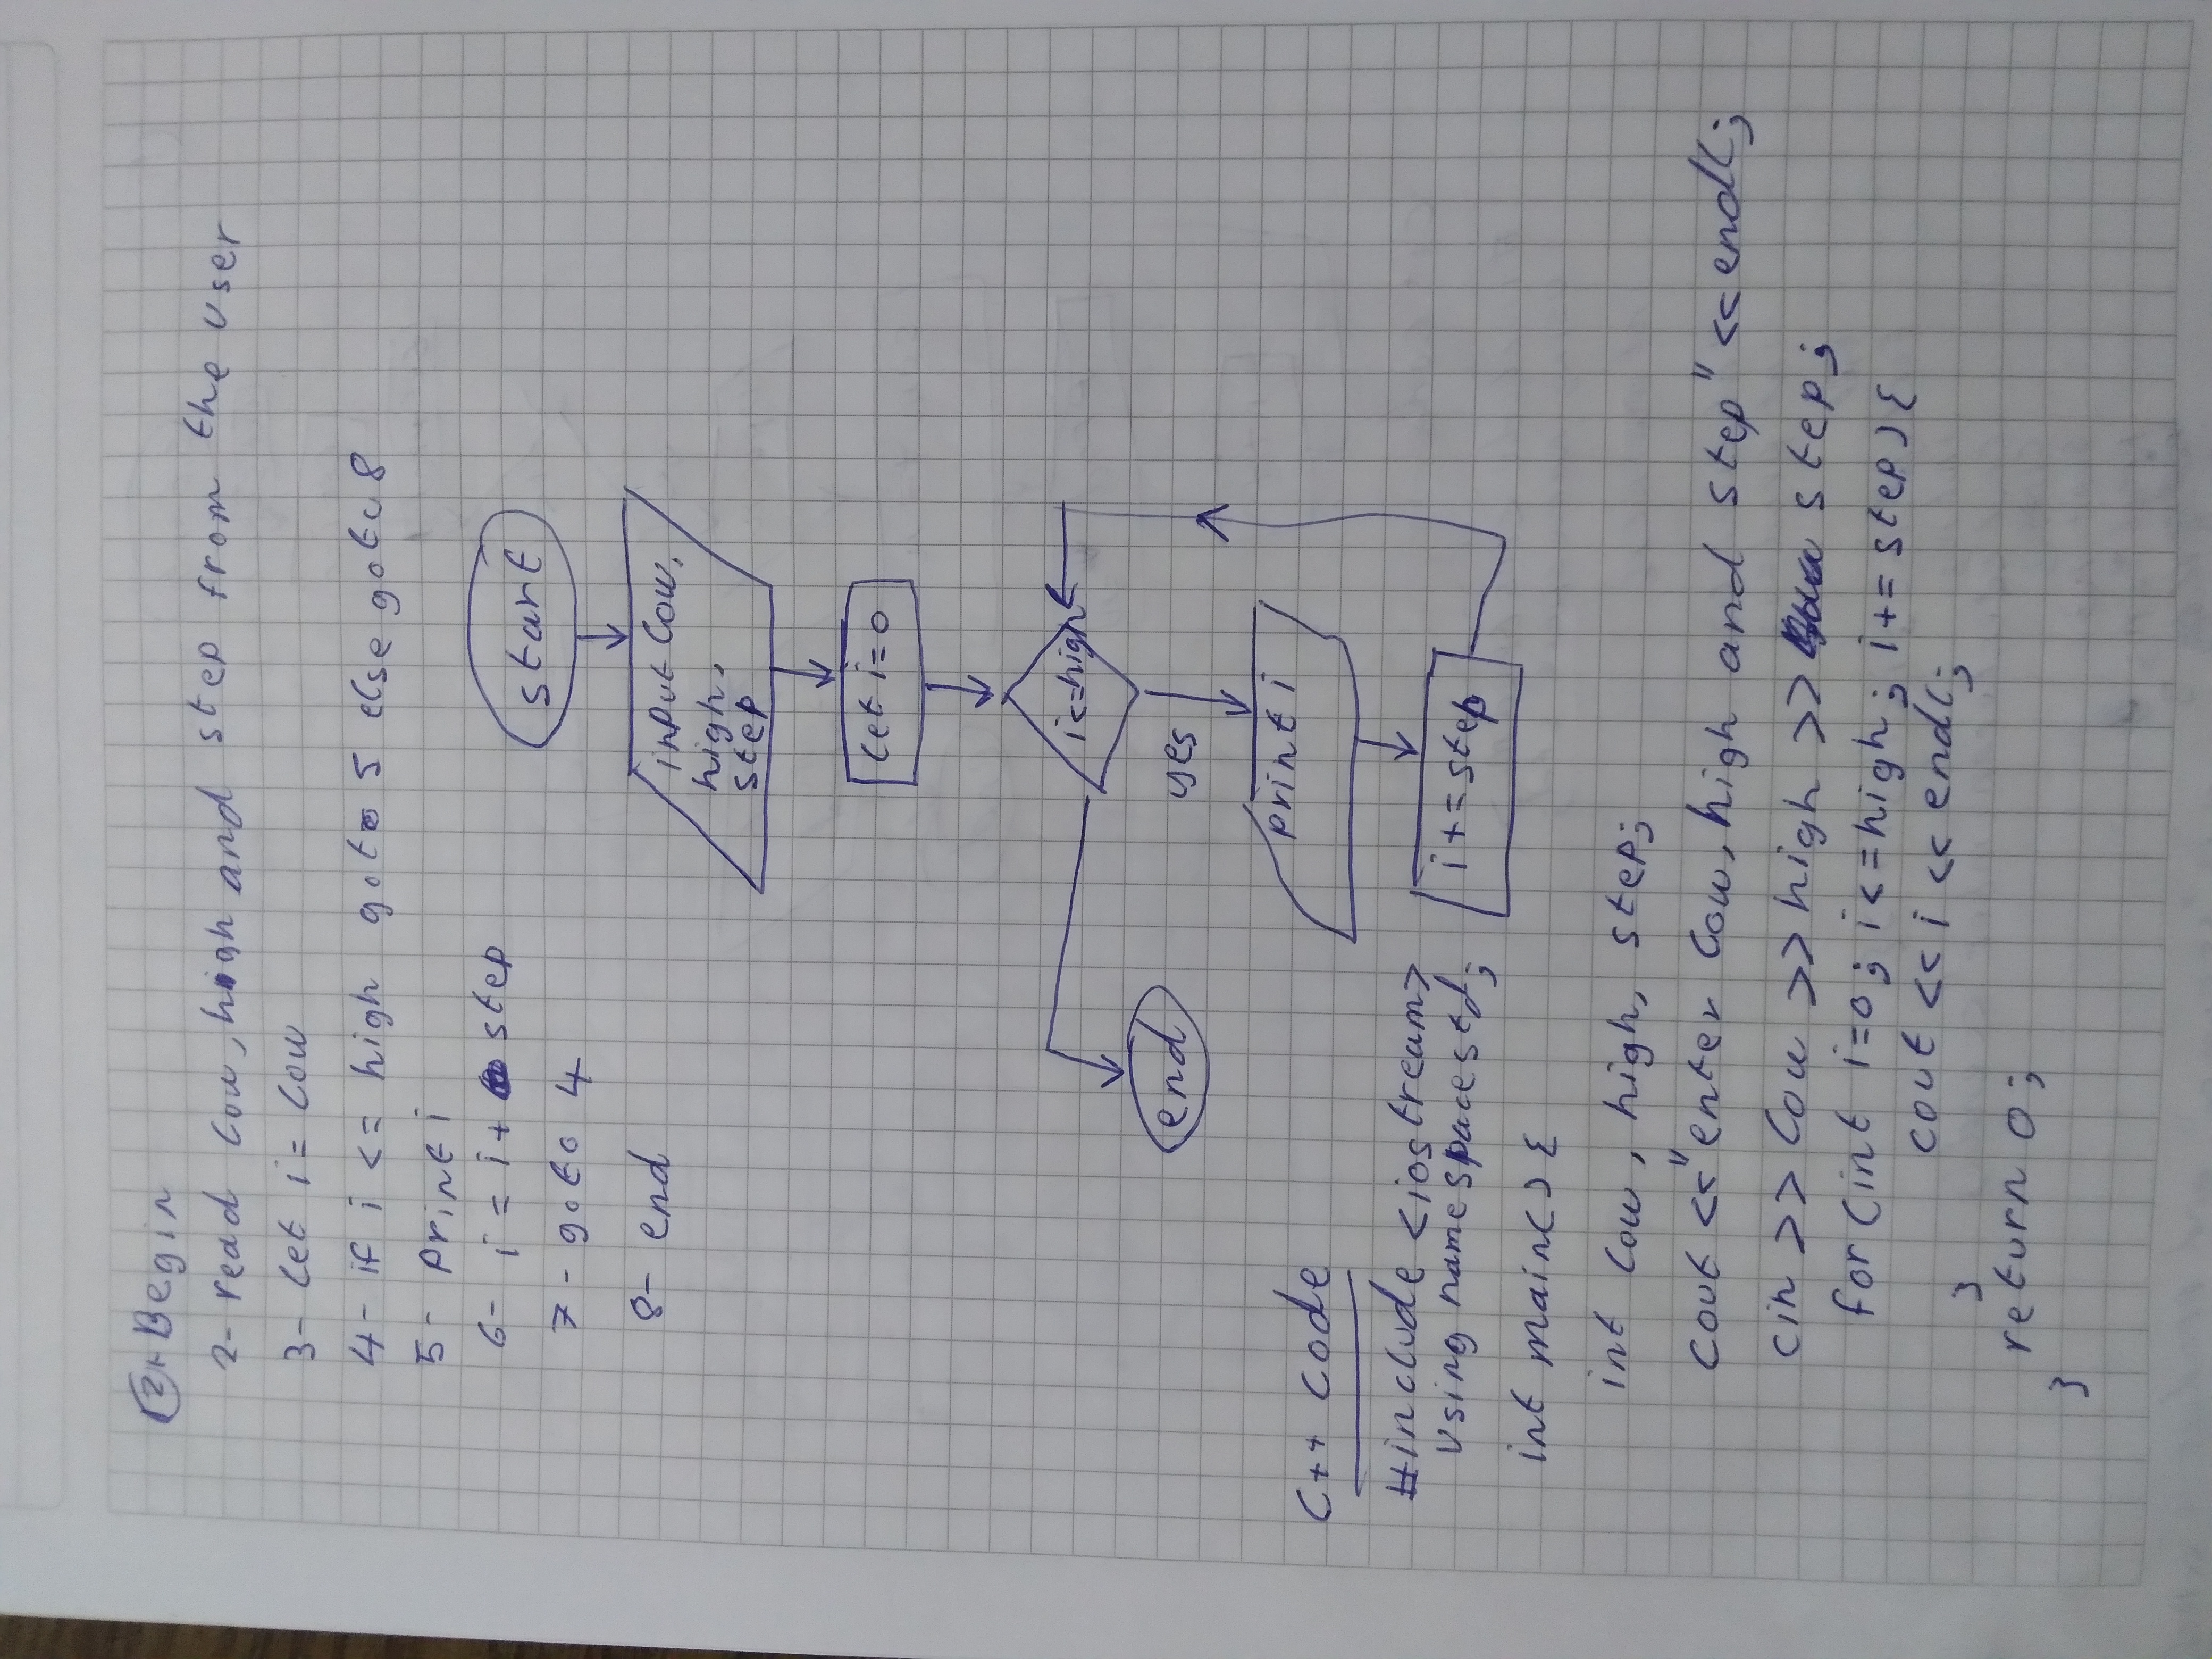 2 1- Begin
2- read low, high and step from the user
3- let i = low
4- if i <= high goto 5 else goto 8
5- print i
6- i = i + step
7- goto 4
8- end
start
input low,
high,
step
let i=0
i<=high
end
yes
print i
i+=step
C++ code
#include <iostream>
using namespace std;
int main() {
int low, high, step;
cout <<"enter low, high and step" <<endl;
cin >> low >> high >> step;
for (int i=0; i<=high; i+=step) {
cout << i << endl;
}
return 0;
}